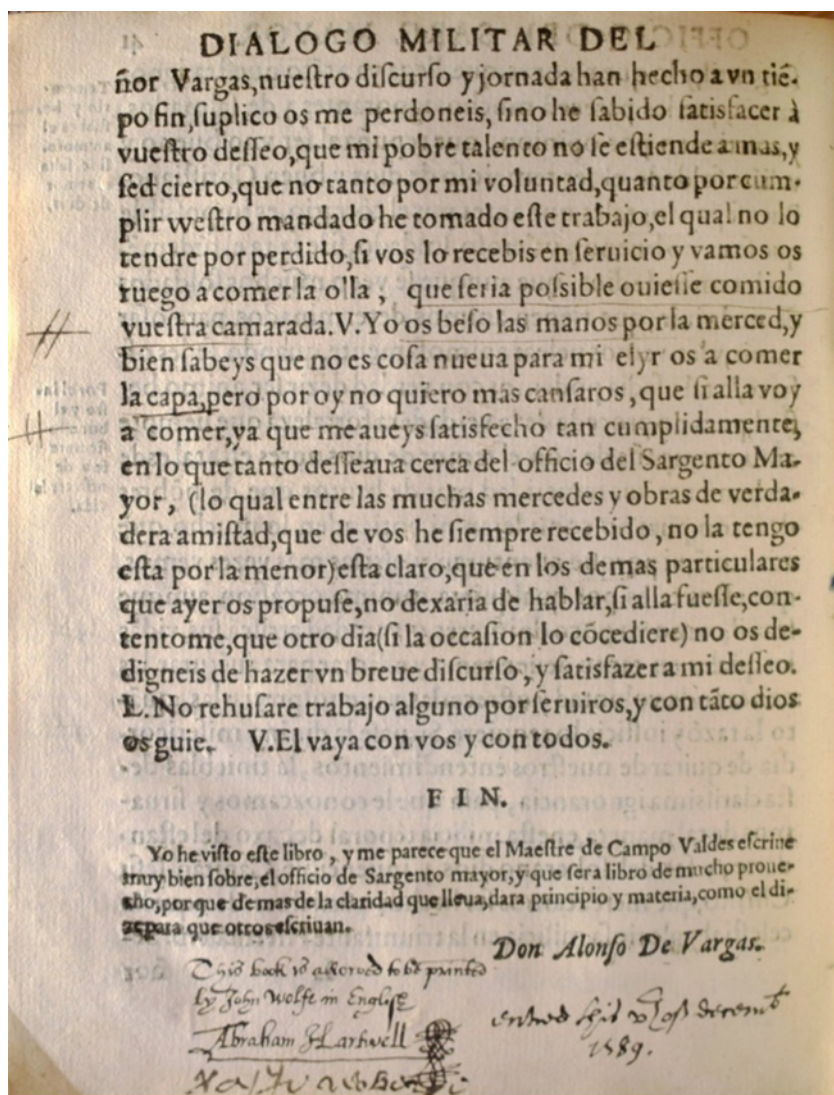 DIALOGO MILITAR DEL
ñor Vargas,nueſtro diſcurſo y jornada han hecho a vn tiẽ-
po fin,ſuplico os me perdoneis, ſino he ſabido ſatisfacer à
vueſtro deſſeo,que mi pobre talento no ſe eſtiende a mas,y
ſed cierto,que no tanto por mi voluntad,quanto por cum-
plir vueſtro mandado he tomado eſte trabajo,el qual no lo
tendre por perdido,ſi vos lo recebis en ſeruicio y vamos os
ruego a comer la olla , que ſeria poſsible ouieſſe comido
vueſtra camarada.V.Yo os beſo las manos por la merced,y
bien ſabeys que no es coſa nueua para mi el yr os a comer
la capa,pero por oy no quiero mas canſaros, que ſi alla voy
a comer,ya que me aueys ſatisfecho tan cumplidamente,
en lo que tanto deſſeaua cerca del officio del Sargento Ma-
yor, (lo qual entre las muchas mercedes y obras de verda-
dera amiſtad,que de vos he ſiempre recebido, no la tengo
eſta por la menor)eſta claro,que en los demas particulares
que ayer os propuſe,no dexaria de hablar,ſi alla fueſſe,con-
tentome,que otro dia(ſi la occaſion lo cõcediere) no os de-
digneis de hazer vn breue diſcurſo, y ſatisfazer a mi deſſeo.
L.No rehuſare trabajo alguno por ſeruiros,y con tãto dios
os guie. V.El vaya con vos y con todos.
FIN.
Yo he viſto eſte libro , y me parece que el Maeſtre de Campo Valdes eſcriue
muy bien ſobre,el officio de Sargento mayor,y que ſera libro de mucho proue-
cho,porque demas de la claridad que lleua,dara principio y materia,como el di-
ze para que otros eſcriuan.
Don Alonſo De Vargas.
This book is allowed to be printed
by John Wolfe in Englise
Abraham Hartwell
entred
decemb
1589.